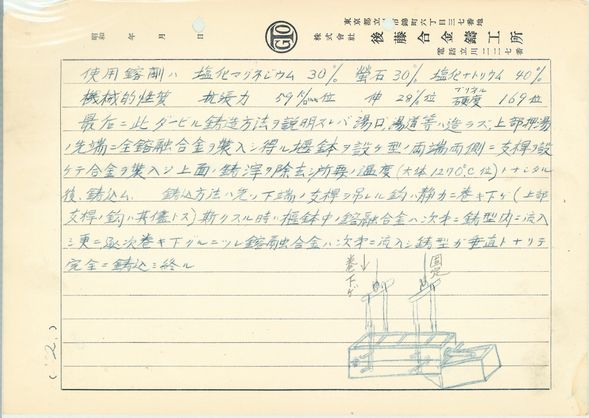 東京都立川市錦町六丁目三七番地
株式会社 後藤合金鑄工所
電話立川二二二七番
昭和 年 月 日
使用鎔剤ハ 塩化マグネシウム 30% 螢石30% 塩化ナトリウム 40%
機械的性質 抗張力 59 位 伸 28%位 ブリネル硬度 169位
最后ニ此ダービル鋳造方法ヲ説明スレバ湯口、湯道等ハ造ラズ、上部押湯
ノ先端ニ全鎔融合金ヲ装入シ得ル堰鉢ヲ設ケ型ノ両端両側ニ支桿ヲ設
ケテ合金ヲ装入シ上面ノ鋳滓ヲ除去シ所要ノ温度(大体1270°C位)トナシタル
後、鋳込ム. 鋳込方法ハ先ヅ下端ノ支桿ヲ吊レル鈎ハ静カニ巻キ下ゲ(上部
支桿ノ鈎ハ其儘トス)斯クスル時ハ堰鉢中ノ鎔融合金ハ次第ニ鋳型内ニ流入
シ更ニ逐次巻キ下グルニツレ鎔融合金ハ次第ニ流入シ鋳型ガ垂直トナリテ
完全ニ鋳込ミ終ル
巻下ゲ
固定
(2.)